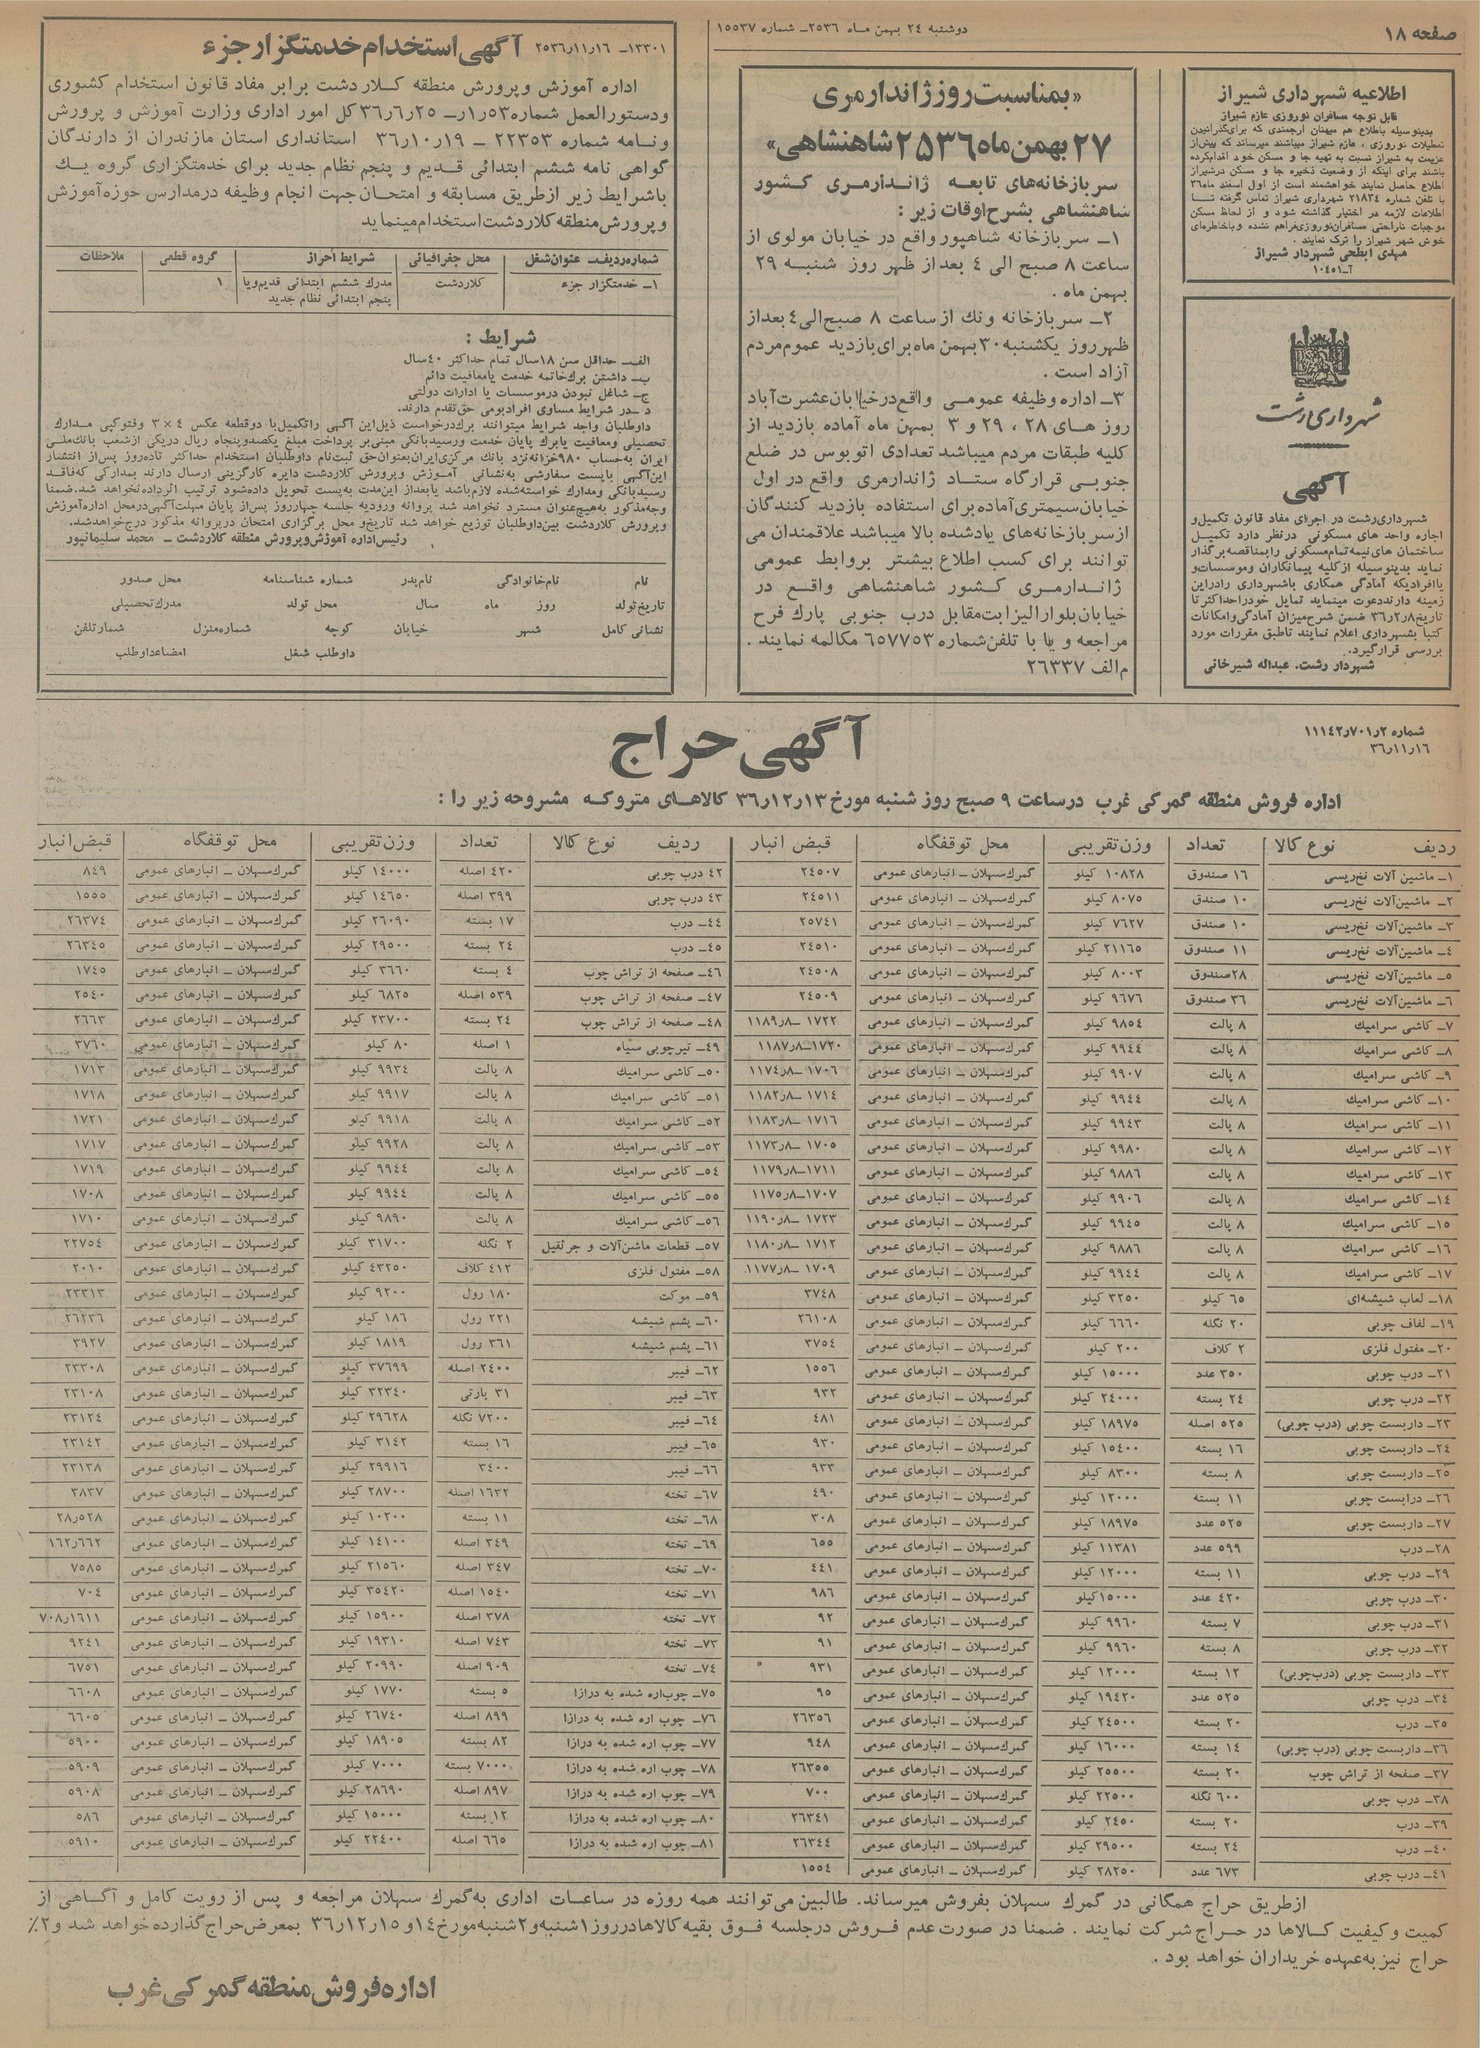 صفحه ۱۸
دوشنبه ۲۴ بهمن ماه ۲۵۳۶ـ شماره ۱۵۵۳۷
اطلاعیه شهرداری شیراز
قابل توجه مسافران نوروزی عازم شیراز
بدینوسیله باطلاع هم میهنان ارجمندی که برای گذرانیدن
تعطیلات نوروزی ، عازم شیراز میباشند میرساند که پیش از
عزیمت به شیراز نسبت به تهیه جا و مسکن خود اقدام کرده
باشند برای اینکه از وضعیت ذخیره جا و مسکن در شیراز
اطلاع حاصل نمایند خواهشمند است از اول اسفند ماه ۳۶
با تلفن شماره ۲۱۸۳۴ شهرداری شیراز تماس گرفته تا
اطلاعات لازمه در اختیار گذاشته شود و از لحاظ مسکن
موجبات ناراحتی مسافران نوروزی فراهم نشده و باخاطره‌ای
خوش شهر شیراز را ترک نمایند .
مهدی ابطحی شهردار شیراز
آـ۱۰۴۵۱
شهرداری رشت
آگهی
شهرداری رشت در اجرای مفاد قانون تکمیل و
اجاره واحد های مسکونی در نظر دارد تکمیل
ساختمان های نیمه تمام مسکونی را بمناقصه برگذار
نماید بدینوسیله از کلیه پیمانکاران و موسسات و
یا افرادیکه آمادگی همکاری با شهرداری را در این
زمینه دارند دعوت مینماید تمایل خود را حداکثر تا
تاریخ ۳۶ر۸ر۲ ضمن شرح میزان آمادگی و امکانات
کتبا بشهرداری اعلام نمایند تا طبق مقررات مورد
بررسی قرار گیرد.
شهردار رشت. عبداله شیرخانی
«بمناسبت روز ژاندارمری
۲۷ بهمن ماه ۲۵۳۶ شاهنشاهی»
سربازخانه‌های تابعه ژاندارمری کشور
شاهنشاهی بشرح اوقات زیر :
۱ـ سربازخانه شاهپور واقع در خیابان مولوی از
ساعت ۸ صبح الی ۴ بعد از ظهر روز شنبه ۲۹
بهمن ماه .
۲ـ سربازخانه ونک از ساعت ۸ صبح الی ۴ بعد از
ظهر روز یکشنبه ۳۰ بهمن ماه برای بازدید عموم مردم
آزاد است .
۳ـ اداره وظیفه عمومی واقع در خیابان عشرت آباد
روز های ۲۸ ، ۲۹ و ۳ بمهن ماه آماده بازدید از
کلیه طبقات مردم میباشد تعدادی اتوبوس در ضلع
جنوبی قرارگاه ستاد ژاندارمری واقع در اول
خیابان سیمتری آماده برای استفاده بازدید کنندگان
از سربازخانه‌های یادشده بالا میباشد علاقمندان می
توانند برای کسب اطلاع بیشتر بروابط عمومی
ژاندارمری کشور شاهنشاهی واقع در
خیابان بلوار الیزابت مقابل درب جنوبی پارک فرح
مراجعه و یا با تلفن شماره ۶۵۷۷۵۳ مکالمه نمایند .
م الف ۲۶۳۳۷
۱۳۳۰۱ـ ۲۵۳۶ر۱۱ر۱۶ آگهی استخدام خدمتگزار جزء
اداره آموزش و پرورش منطقه کلاردشت برابر مفاد قانون استخدام کشوری
و دستورالعمل شماره ۵۳ر۱رـ ۲۵ر۶ر۳۶ کل امور اداری وزارت آموزش و پرورش
و نامه شماره ۲۲۳۵۳ ـ ۱۹ر۱۰ر۳۶ استانداری استان مازندران از دارندگان
گواهی نامه ششم ابتدائی قدیم و پنجم نظام جدید برای خدمتگزاری گروه یک
با شرایط زیر از طریق مسابقه و امتحان جهت انجام وظیفه در مدارس حوزه آموزش
و پرورش منطقه کلاردشت استخدام مینماید
شماره ردیف ـ عنوان شغل محل جغرافیائی شرایط احراز گروه قطعی ملاحظات
۱ـ خدمتگزار جزء کلاردشت مدرک ششم ابتدائی قدیم و یا ۱
پنجم ابتدائی نظام جدید
شرایط :
الف ـ حداقل سن ۱۸ سال تمام حداکثر ۴۰ سال
ب ـ داشتن برک خاتمه خدمت یا معافیت دائم
ج ـ شاغل نبودن در موسسات یا ادارات دولتی
د ـ در شرایط مساوی افراد بومی حق تقدم دارند.
داوطلبان واجد شرایط میتوانند برک درخواست ذیل این آگهی را تکمیل با دو قطعه عکس ۴ × ۳ و فتوکپی مدارک
تحصیلی و معافیت یا برک پایان خدمت و رسید بانکی مبنی بر پرداخت مبلغ یکصد و پنجاه ریال در یکی از شعب بانک ملی
ایران به حساب ۹۸۰ خزانه نزد بانک مرکزی ایران بعنوان حق ثبت نام داوطلبان استخدام حداکثر تا ده روز پس از انتشار
این آگهی با پست سفارشی به نشانی آموزش و پرورش کلاردشت دایره کارگزینی ارسال دارند بمدارکی که فاقد
رسید بانکی و مدارک خواسته شده لازم باشد یا بعد از این مدت به پست تحویل داده شود ترتیب اثر داده نخواهد شد. ضمنا
وجه مذکور به هیچ عنوان مسترد نخواهد شد پروانه ورودیه جلسه چهار روز پس از پایان مهلت آگهی در محل اداره آموزش
و پرورش کلاردشت بین داوطلبان توزیع خواهد شد تاریخ و محل برگزاری امتحان در پروانه مذکور درج خواهد شد.
رئیس اداره آموزش و پرورش منطقه کلاردشت ـ محمد سلیمانپور
نام نام خانوادگی نام پدر شماره شناسنامه محل صدور
تاریخ تولد روز ماه سال محل تولد مدرک تحصیلی
نشانی کامل شهر خیابان کوچه شماره منزل شمار تلفن
داوطلب شغل امضاء داوطلب
شماره ۲ر۷۰۱ر۱۱۱۴۲
۱۶ر۱۱ر۳۶
آگهی حراج
اداره فروش منطقه گمرکی غرب در ساعت ۹ صبح روز شنبه مورخ ۱۳ر۱۲ر۳۶ کالاهای متروکه مشروحه زیر را :
ردیف نوع کالا تعداد وزن تقریبی محل توقفگاه قبض انبار
۱ـ ماشین آلات نخ ریسی ۱۶ صندوق ۱۰۸۲۸ کیلو گمرک سهلان ـ انبارهای عمومی ۲۴۵۰۷
۲ـ ماشین آلات نخ ریسی ۱۰ صندق ۸۰۷۵ کیلو گمرک سهلان ـ انبارهای عمومی ۲۴۵۱۱
۳ـ ماشین آلات نخ ریسی ۱۰ صندق ۷۶۲۷ کیلو گمرک سهلان ـ انبارهای عمومی ۲۵۷۴۱
۴ـ ماشین آلات نخ ریسی ۱۱ صندوق ۲۱۱۶۵ کیلو گمرک سهلان ـ انبارهای عمومی ۲۴۵۱۰
۵ـ ماشین آلات نخ ریسی ۲۸ صندوق ۸۰۰۳ کیلو گمرک سهلان ـ انبارهای عمومی ۲۴۵۰۸
۶ـ ماشین آلات نخ ریسی ۳۶ صندوق ۹۶۷۶ کیلو گمرک سهلان ـ انبارهای عمومی ۲۴۵۰۹
۷ـ کاشی سرامیک ۸ پالت ۹۸۵۴ کیلو گمرک سهلان ـ انبارهای عمومی ۱۷۲۲ـ۸ر۱۱۸۹
۸ـ کاشی سرامیک ۸ پالت ۹۹۴۴ کیلو گمرک سهلان ـ انبارهای عمومی ۱۷۲۰ـ۸ر۱۱۸۷
۹ـ کاشی سرامیک ۸ پالت ۹۹۰۷ کیلو گمرک سهلان ـ انبارهای عمومی ۱۷۰۶ـ۸ر۱۱۷۴
۱۰ـ کاشی سرامیک ۸ پالت ۹۹۴۴ کیلو گمرک سهلان ـ انبارهای عمومی ۱۷۱۴ـ۸ر۱۱۸۲
۱۱ـ کاشی سرامیک ۸ پالت ۹۹۴۳ کیلو گمرک سهلان ـ انبارهای عمومی ۱۷۱۶ـ۸ر۱۱۸۳
۱۲ـ کاشی سرامیک ۸ پالت ۹۹۸۰ کیلو گمرک سهلان ـ انبارهای عمومی ۱۷۰۵ـ۸ر۱۱۷۳
۱۳ـ کاشی سرامیک ۸ پالت ۹۸۸۶ کیلو گمرک سهلان ـ انبارهای عمومی ۱۷۱۱ـ۸ر۱۱۷۹
۱۴ـ کاشی سرامیک ۸ پالت ۹۹۰۶ کیلو گمرک سهلان ـ انبارهای عمومی ۱۷۰۷ـ۸ر۱۱۷۵
۱۵ـ کاشی سرامیک ۸ پالت ۹۹۴۵ کیلو گمرک سهلان ـ انبارهای عمومی ۱۷۲۳ـ۸ر۱۱۹۰
۱۶ـ کاشی سرامیک ۸ پالت ۹۸۸۶ کیلو گمرک سهلان ـ انبارهای عمومی ۱۷۱۲ـ۸ر۱۱۸۰
۱۷ـ کاشی سرامیک ۸ پالت ۹۹۴۴ کیلو گمرک سهلان ـ انبارهای عمومی ۱۷۰۹ـ۸ر۱۱۷۷
۱۸ـ لعاب شیشه‌ای ۶۵ کیلو ۳۲۵۰ کیلو گمرک سهلان ـ انبارهای عمومی ۳۷۴۸
۱۹ـ لفاف چوبی ۲۰ نگله ۶۶۶۰ کیلو گمرک سهلان ـ انبارهای عمومی ۲۶۱۰۸
۲۰ـ مفتول فلزی ۲ کلاف ۲۰۰ کیلو گمرک سهلان ـ انبارهای عمومی ۳۷۵۴
۲۱ـ درب چوبی ۳۵۰ عدد ۱۵۰۰۰ کیلو گمرک سهلان ـ انبارهای عمومی ۱۵۵۶
۲۲ـ درب چوبی ۲۴ بسته ۲۴۰۰۰ کیلو گمرک سهلان ـ انبارهای عمومی ۹۳۲
۲۳ـ داربست چوبی (درب چوبی) ۵۲۵ اصله ۱۸۹۷۵ کیلو گمرک سهلان ـ انبارهای عمومی ۴۸۱
۲۴ـ داربست چوبی ۱۶ بسته ۱۵۴۰۰ کیلو گمرک سهلان ـ انبارهای عمومی ۹۳۰
۲۵ـ داربست چوبی ۸ بسته ۸۳۰۰ کیلو گمرک سهلان ـ انبارهای عمومی ۹۳۳
۲۶ـ درابست چوبی ۱۱ بسته ۱۲۰۰۰ کیلو گمرک سهلان ـ انبارهای عمومی ۴۹۰
۲۷ـ داربست چوبی ۵۲۵ عدد ۱۸۹۷۵ کیلو گمرک سهلان ـ انبارهای عمومی ۳۰۸
۲۸ـ درب ۵۹۹ عدد ۱۱۳۸۱ کیلو گمرک سهلان ـ انبارهای عمومی ۶۵۵
۲۹ـ درب چوبی ۱۱ بسته ۱۲۰۰۰ کیلو گمرک سهلان ـ انبارهای عمومی ۴۴۱
۳۰ـ درب چوبی ۴۲۰ عدد ۱۵۰۰۰ کیلو گمرک سهلان ـ انبارهای عمومی ۹۸۶
۳۱ـ درب چوبی ۷ بسته ۹۹۶۰ کیلو گمرک سهلان ـ انبارهای عمومی ۹۲
۳۲ـ درب چوبی ۸ بسته ۹۹۶۰ کیلو گمرک سهلان ـ انبارهای عمومی ۹۱
۳۳ـ داربست چوبی (درب چوبی) ۱۲ بسته ۱۲۰۰۰ کیلو گمرک سهلان ـ انبارهای عمومی ۹۳۱
۳۴ـ درب چوبی ۵۲۵ عدد ۱۹۴۲۰ کیلو گمرک سهلان ـ انبارهای عمومی ۹۵
۳۵ـ درب ۲۰ بسته ۲۴۵۰۰ کیلو گمرک سهلان ـ انبارهای عمومی ۲۶۳۵۶
۳۶ـ داربست چوبی (درب چوبی) ۱۴ بسته ۱۶۰۰۰ کیلو گمرک سهلان ـ انبارهای عمومی ۹۴۸
۳۷ـ صفحه از تراش چوب ۲۰ بسته ۲۵۵۰۰ کیلو گمرک سهلان ـ انبارهای عمومی ۲۶۳۵۵
۳۸ـ درب چوبی ۶۰۰ نگله ۲۲۵۰۰ کیلو گمرک سهلان ـ انبارهای عمومی ۷۰۰
۳۹ـ درب ۲۰ بسته ۲۴۵۰ کیلو گمرک سهلان ـ انبارهای عمومی ۲۶۳۴۱
۴۰ـ درب ۲۴ بسته ۲۹۵۰۰ کیلو گمرک سهلان ـ انبارهای عمومی ۲۶۳۴۴
۴۱ـ درب چوبی ۶۷۳ عدد ۲۸۲۵۰ کیلو گمرک سهلان ـ انبارهای عمومی ۱۵۵۴
ردیف نوع کالا تعداد وزن تقریبی محل توقفگاه قبض انبار
۴۲ درب چوبی ۴۲۰ اصله ۱۴۰۰۰ کیلو گمرک سهلان ـ انبارهای عمومی ۸۴۹
۴۳ درب چوبی ۳۹۹ اصله ۱۴۶۵۰ کیلو گمرک سهلان ـ انبارهای عمومی ۱۵۵۵
۴۴ـ درب ۱۷ بسته ۲۶۰۹۰ کیلو گمرک سهلان ـ انبارهای عمومی ۲۶۳۷۴
۴۵ـ درب ۲۴ بسته ۲۹۵۰۰ کیلو گمرک سهلان ـ انبارهای عمومی ۲۶۳۴۵
۴۶ـ صفحه از تراش چوب ۴ بسته ۳۶۶۰ کیلو گمرک سهلان ـ انبارهای عمومی ۱۷۴۵
۴۷ـ صفحه از تراش چوب ۵۳۹ اصله ۶۸۲۵ کیلو گمرک سهلان ـ انبارهای عمومی ۲۵۴۰
۴۸ـ صفحه از تراش چوب ۲۴ بسته ۲۳۷۰۰ کیلو گمرک سهلان ـ انبارهای عمومی ۲۶۶۳
۴۹ـ تیر چوبی سیاه ۱ اصله ۸۰ کیلو گمرک سهلان ـ انبارهای عمومی ۳۷۶۰
۵۰ـ کاشی سرامیک ۸ پالت ۹۹۳۴ کیلو گمرک سهلان ـ انبارهای عمومی ۱۷۱۳
۵۱ـ کاشی سرامیک ۸ پالت ۹۹۱۷ کیلو گمرک سهلان ـ انبارهای عمومی ۱۷۱۸
۵۲ـ کاشی سرامیک ۸ پالت ۹۹۱۸ کیلو گمرک سهلان ـ انبارهای عمومی ۱۷۲۱
۵۳ـ کاشی سرامیک ۸ پالت ۹۹۲۸ کیلو گمرک سهلان ـ انبارهای عمومی ۱۷۱۷
۵۴ـ کاشی سرامیک ۸ پالت ۹۹۴۴ کیلو گمرک سهلان ـ انبارهای عمومی ۱۷۱۹
۵۵ـ کاشی سرامیک ۸ پالت ۹۹۴۴ کیلو گمرک سهلان ـ انبارهای عمومی ۱۷۰۸
۵۶ـ کاشی سرامیک ۸ پالت ۹۸۹۰ کیلو گمرک سهلان ـ انبارهای عمومی ۱۷۱۰
۵۷ـ قطعات ماشن آلات و جرثقیل ۲ نگله ۳۱۷۰۰ کیلو گمرک سهلان ـ انبارهای عمومی ۲۲۷۵۴
۵۸ـ مفتول فلزی ۴۱۲ کلاف ۴۳۲۵۰ کیلو گمرک سهلان ـ انبارهای عمومی ۲۰۱۰
۵۹ـ موکت ۱۸۰ رول ۹۲۰۰ کیلو گمرک سهلان ـ انبارهای عمومی ۲۳۳۱۳
۶۰ـ پشم شیشه ۲۲۱ رول ۱۸۶ کیلو گمرک سهلان ـ انبارهای عمومی ۲۶۲۳۶
۶۱ـ پشم شیشه ۳۶۱ رول ۱۸۱۹ کیلو گمرک سهلان ـ انبارهای عمومی ۳۹۲۷
۶۲ـ فیبر ۲۴۰۰ اصله ۳۷۶۹۹ کیلو گمرک سهلان ـ انبارهای عمومی ۲۳۳۰۸
۶۳ـ فیبر ۳۱ پارتی ۳۲۳۴۰ کیلو گمرک سهلان ـ انبارهای عمومی ۲۳۱۰۸
۶۴ـ فیبر ۷۲۰۰ نگله ۲۹۶۲۸ کیلو گمرک سهلان ـ انبارهای عمومی ۲۳۱۲۴
۶۵ـ فیبر ۱۶ بسته ۳۱۴۲ کیلو گمرک سهلان ـ انبارهای عمومی ۲۳۱۴۲
۶۶ـ فیبر ۳۴۰۰ ۲۹۹۱۶ کیلو گمرک سهلان ـ انبارهای عمومی ۲۳۱۳۸
۶۷ـ تخته ۱۶۳۲ اصله ۲۸۷۰۰ کیلو گمرک سهلان ـ انبارهای عمومی ۳۸۳۷
۶۸ـ تخته ۱۱ بسته ۱۰۲۰۰ کیلو گمرک سهلان ـ انبارهای عمومی ۲۸ر۵۲۸
۶۹ـ تخته ۳۴۹ اصله ۱۴۱۰۰ کیلو گمرک سهلان ـ انبارهای عمومی ۱۶۲ر۶۶۲
۷۰ـ تخته ۳۴۷ اصله ۲۱۵۶۰ کیلو گمرک سهلان ـ انبارهای عمومی ۷۵۸۵
۷۱ـ تخته ۱۵۴۰ اصله ۳۵۴۲۰ کیلو گمرک سهلان ـ انبارهای عمومی ۷۰۴
۷۲ـ تخته ۳۷۸ اصله ۱۵۹۰۰ کیلو گمرک سهلان ـ انبارهای عمومی ۷۰۸ر۱۶۱۱
۷۳ـ تخته ۷۴۳ اصله ۱۹۳۱۰ کیلو گمرک سهلان ـ انبارهای عمومی ۹۲۴۱
۷۴ـ تخته ۹۰۹ اصله ۲۰۹۹۰ کیلو گمرک سهلان ـ انبارهای عمومی ۶۷۵۱
۷۵ـ چوب اره شده به درازا ۵ بسته ۱۷۷۰ کیلو گمرک سهلان ـ انبارهای عمومی ۶۶۰۸
۷۶ـ چوب اره شده به درازا ۸۹۹ اصله ۲۶۷۴۰ کیلو گمرک سهلان ـ انبارهای عمومی ۶۶۰۵
۷۷ـ چوب اره شده به درازا ۸۲ بسته ۱۸۹۰۵ کیلو گمرک سهلان ـ انبارهای عمومی ۵۹۰۰
۷۸ـ چوب اره شده به درازا ۷۰۰۰ بسته ۷۰۰۰ کیلو گمرک سهلان ـ انبارهای عمومی ۵۹۰۹
۷۹ـ چوب اره شده به درازا ۸۹۷ اصله ۲۸۶۹۰ کیلو گمرک سهلان ـ انبارهای عمومی ۵۹۰۸
۸۰ـ چوب اره شده به درازا ۱۲ بسته ۱۵۰۰۰ کیلو گمرک سهلان ـ انبارهای عمومی ۵۸۶
۸۱ـ چوب اره شده به درازا ۶۶۵ اصله ۲۲۴۰۰ کیلو گمرک سهلان ـ انبارهای عمومی ۵۹۱۰
از طریق حراج همگانی در گمرک سهلان بفروش میرساند. طالبین می‌توانند همه روزه در ساعات اداری به گمرک سهلان مراجعه و پس از رویت کامل و آگاهی از
کمیت و کیفیت کالاها در حراج شرکت نمایند . ضمنا در صورت عدم فروش در جلسه فوق بقیه کالاها در روز ۱شنبه و ۲شنبه مورخ ۱۴ و ۱۵ر۱۲ر۳۶ بمعرض حراج گذارده خواهد شد و ۲٪
حراج نیز به عهده خریداران خواهد بود .
اداره فروش منطقه گمرکی غرب